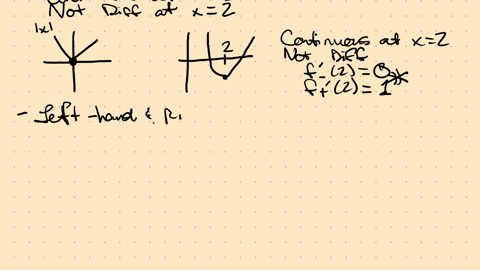 Not Diff at x=2
|x|
2
Continuers at x=2
Not Diff
f'_(2) = 0
f+'(2) = 1
- Left-hand &